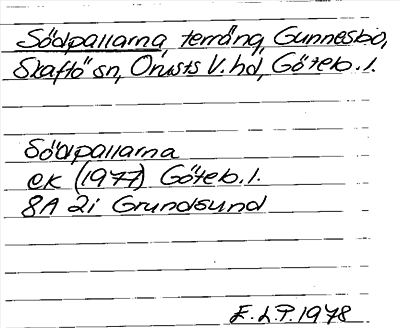 Södpallarna, terräng, Gunnesbo,
Skaftö sn, Orusts V. hd, Göteb. l.
Södpallarna
ek (1977) Göteb. l.
8A 2i Grundsund
E. L. P. 1978